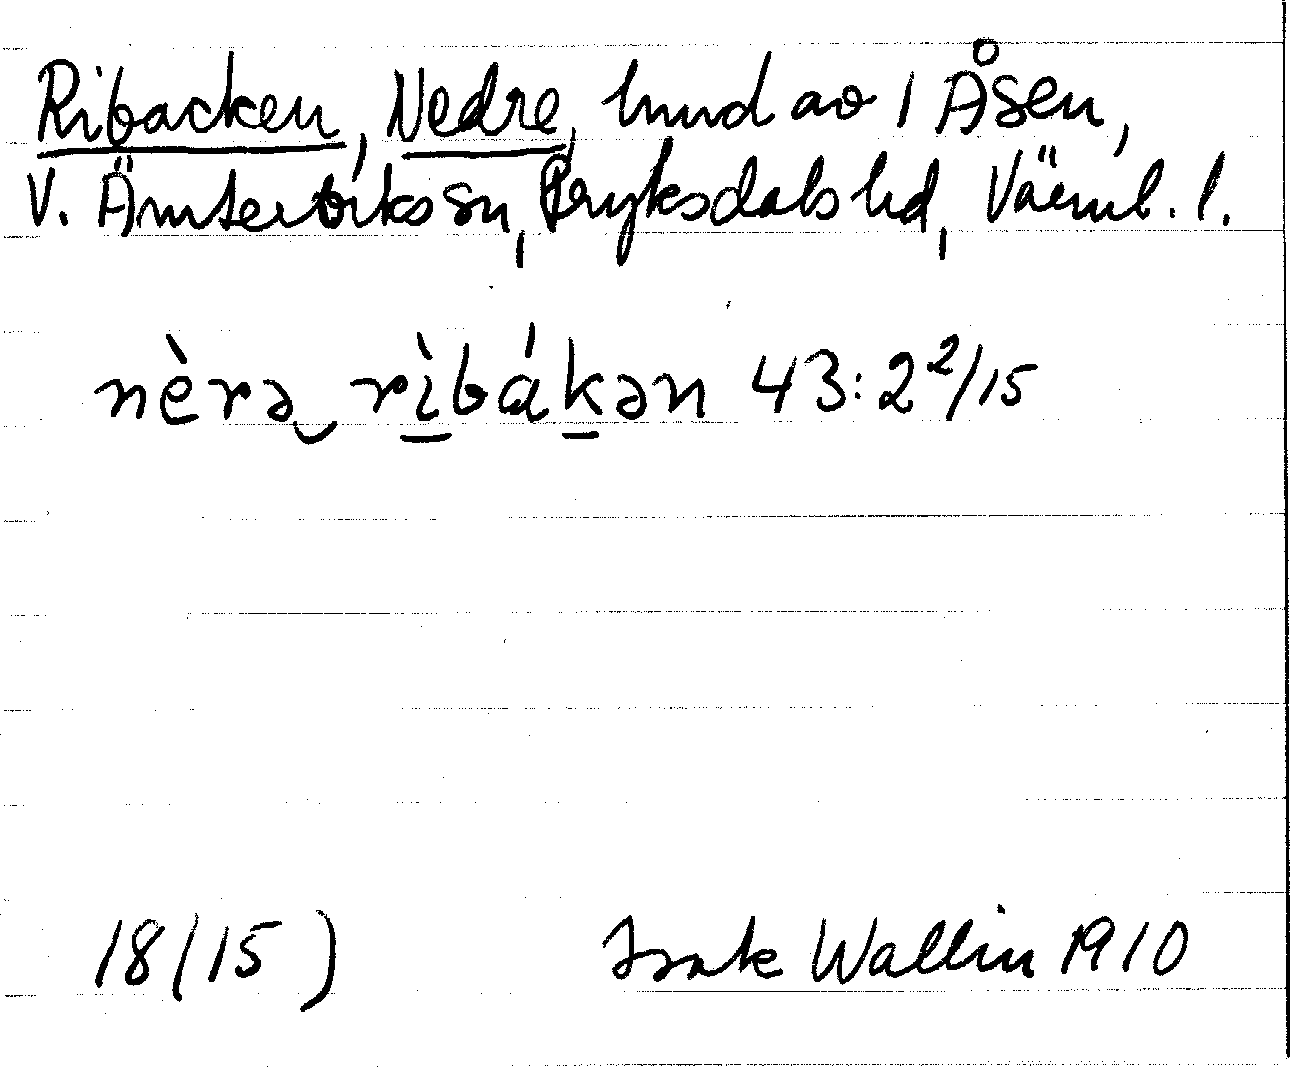 Ribacken, Nedre, hmd av 1 Åsen,
V. Ämterviks sn, Fryksdals hd, Värml. l.
nèrə‿rìbákən 43:2²/15
18(15) Isak Wallin 1910